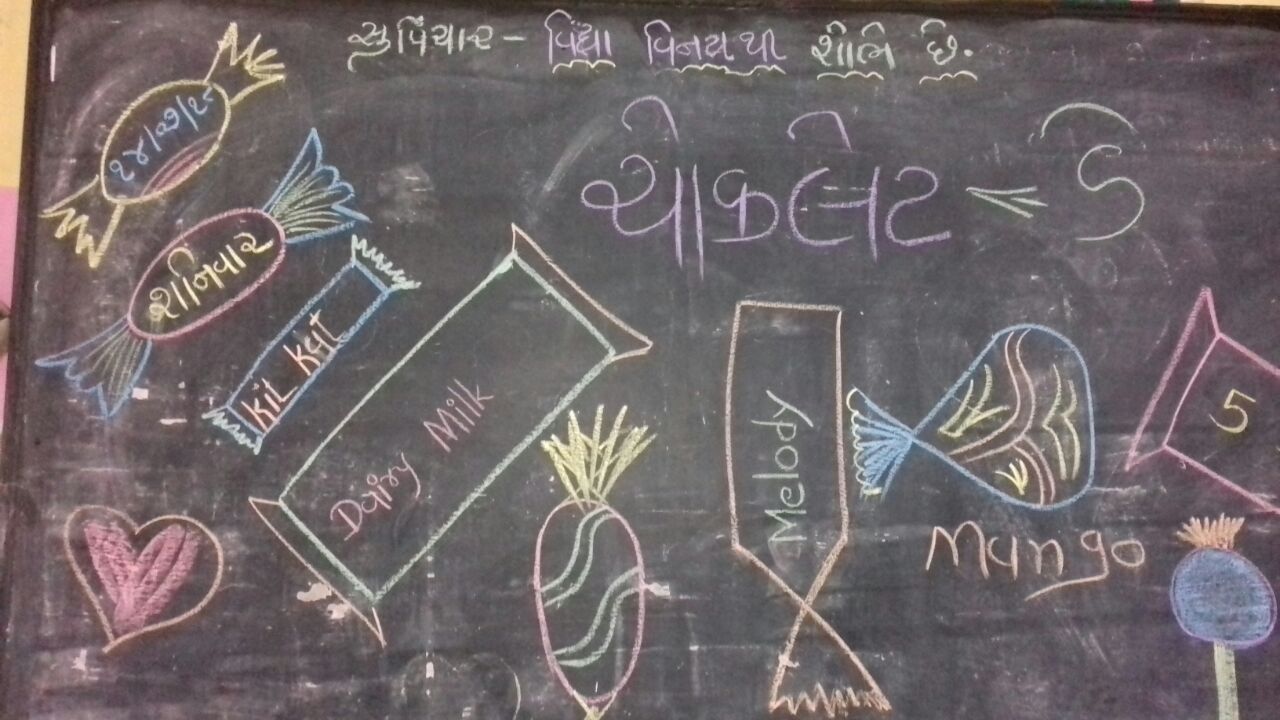 સુવિચાર - વિદ્યા વિનયથી શોભે છે.
ચોકલેટ
શનિવાર
Kit Kat
Dairy Milk
Melody
Mango
5